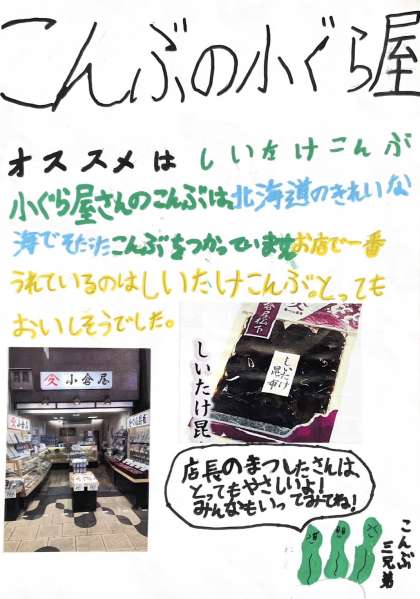 こんぶの小ぐら屋
オススメは しいたけこんぶ
小ぐら屋さんのこんぶは、北海道のきれいな
海でそだったこんぶをつかっています。お店で一番
うれているのはしいたけこんぶ。とっても
おいしそうでした。
小倉屋
しいたけ昆布
しいたけ昆
店長のまつしたさんは、
とってもやさしいよ!
みんなもいってみてね!
こんぶ
三兄弟